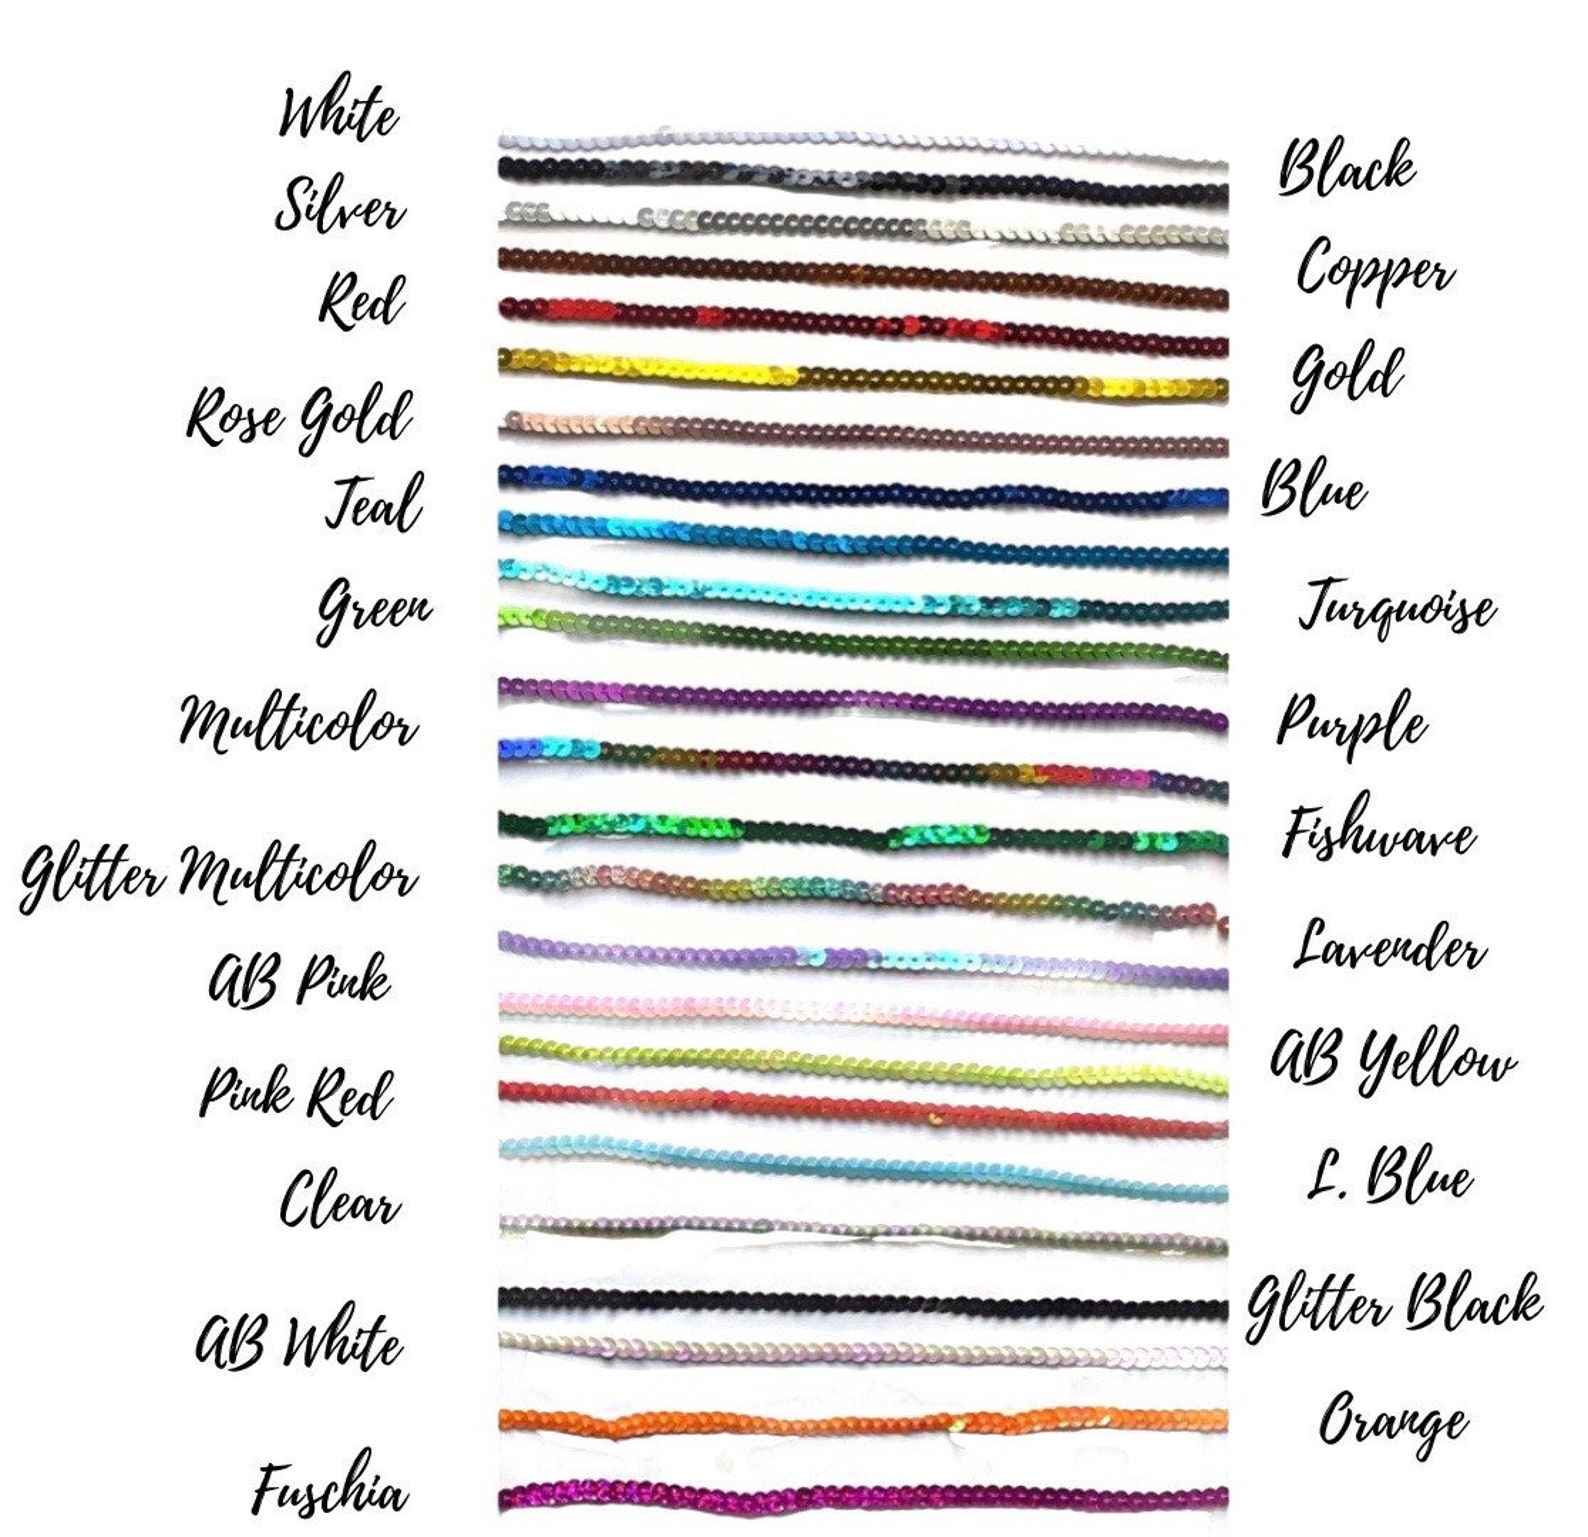 White
Black
Silver
Copper
Red
Gold
Rose Gold
Blue
Teal
Turquoise
Green
Purple
Multicolor
Fishwave
Glitter Multicolor
Lavender
AB Pink
AB Yellow
Pink Red
L. Blue
Clear
Glitter Black
AB White
Orange
Fuschia